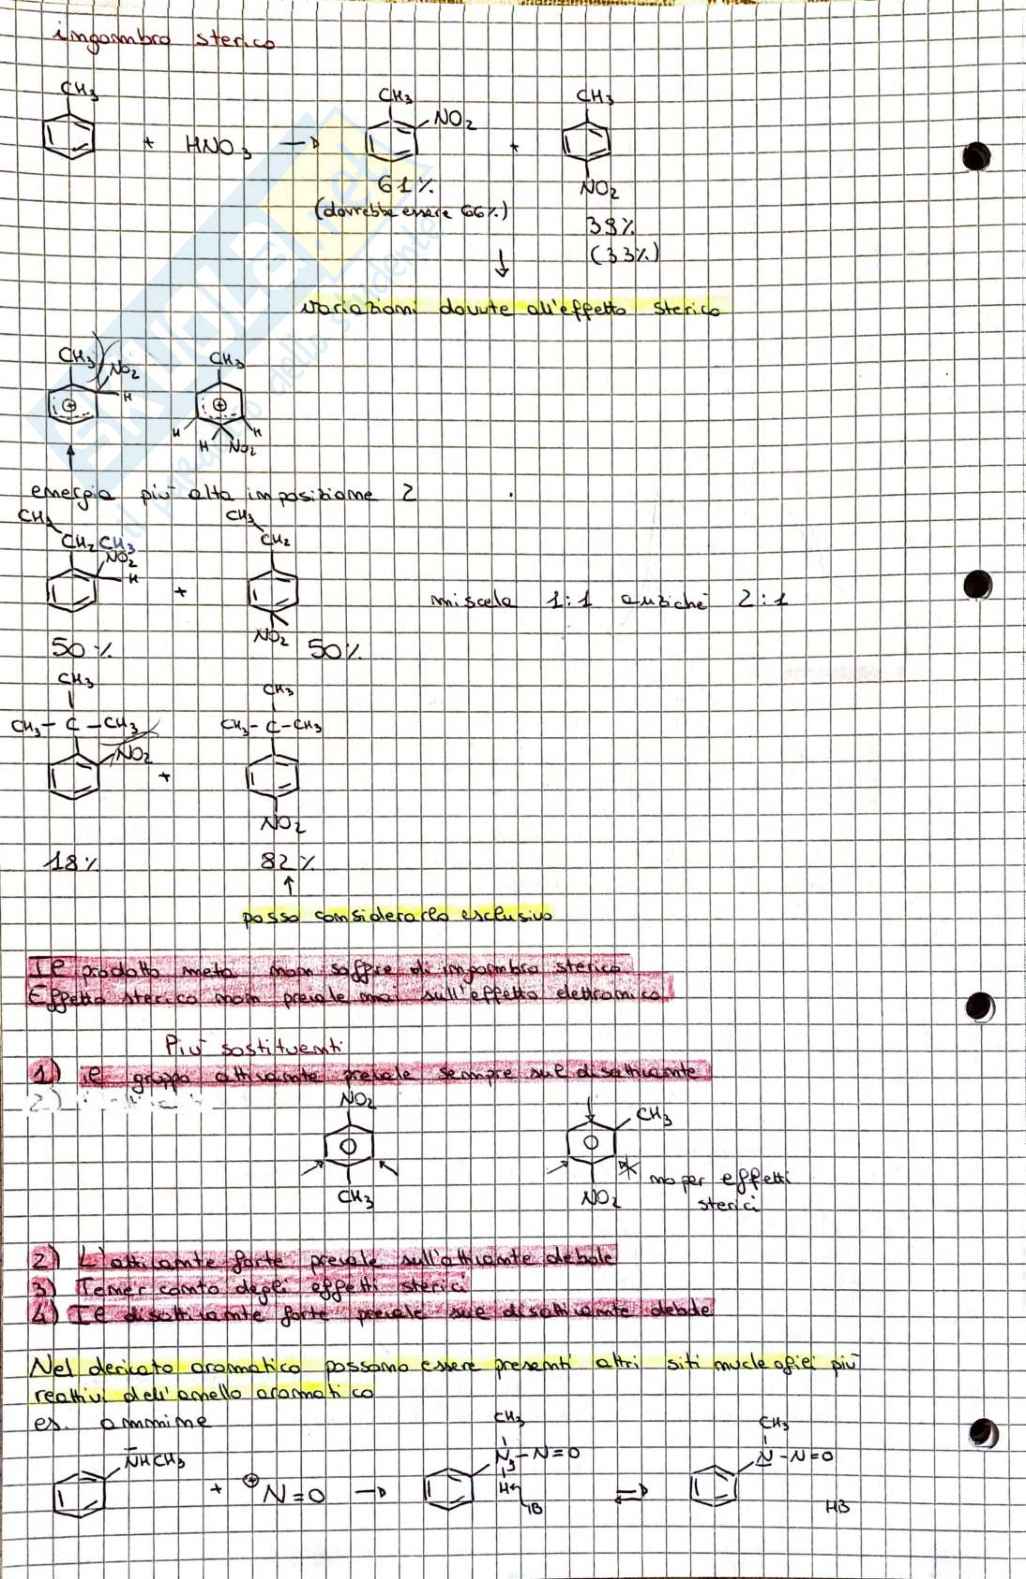 ingombro sterico
CH3 CH3 CH3
+ HNO3 → NO2 +
61% NO2
(dovrebbe essere 66%) 39%
(33%)
↓
variazioni dovute all'effetto sterico
CH3 NO2 CH3
⊕ H ⊕
H H
H NO2
energia più alta in posizione 2
CH3 CH3
CH2 CH3 CH2
NO2
H
+ miscela 1:1 anziché 2:1
NO2
50% 50%
CH3 CH3
CH3-C-CH3 CH3-C-CH3
NO2
+
NO2
18% 82%
↑
posso considerarlo esclusivo
Il prodotto meta non soffre di ingombro sterico
Effetto sterico non prevale mai sull'effetto elettronico
Più sostituenti
1) il gruppo attivante prevale sempre sul disattivante
2)
NO2 CH3
CH3 NO2 no per effetti
sterici
2) L'attivante forte prevale sull'attivante debole
3) Tener conto degli effetti sterici
4) Il disattivante forte prevale sul disattivante debole
Nel derivato aromatico possono essere presenti altri siti nucleofili più
reattivi dell'anello aromatico
es. ammine
CH3 CH3
NHCH3 N-N=O N-N=O
+ ⊕N=O → H ⇌
:B HB